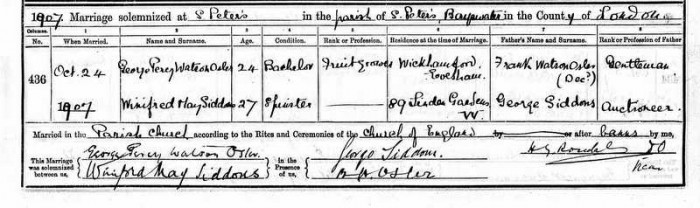 1907 Marriage solemnized at S. Peter's in the parish of S. Peter's, Bayswater in the County of London
Columns. 1 2 3 4 5 6 7 8
No. When Married. Name and Surname. Age. Condition. Rank or Profession. Residence at the time of Marriage. Father's Name and Surname. Rank or Profession of Father
436 Oct. 24 George Percy Watson Osler 24 Bachelor Fruit grower Wickhamford, Evesham. Frank Watson Osler (Decd) Gentleman
1907 Winifred May Siddons 27 Spinster 89 Gardens, W. George Siddons Auctioneer.
Married in the Parish Church according to the Rites and Ceremonies of the Church of England by or after banns by me,
This Marriage was solemnized between us, George Percy Watson Osler. In the Presence of us, George Siddons.
Winifred May Siddons Osler